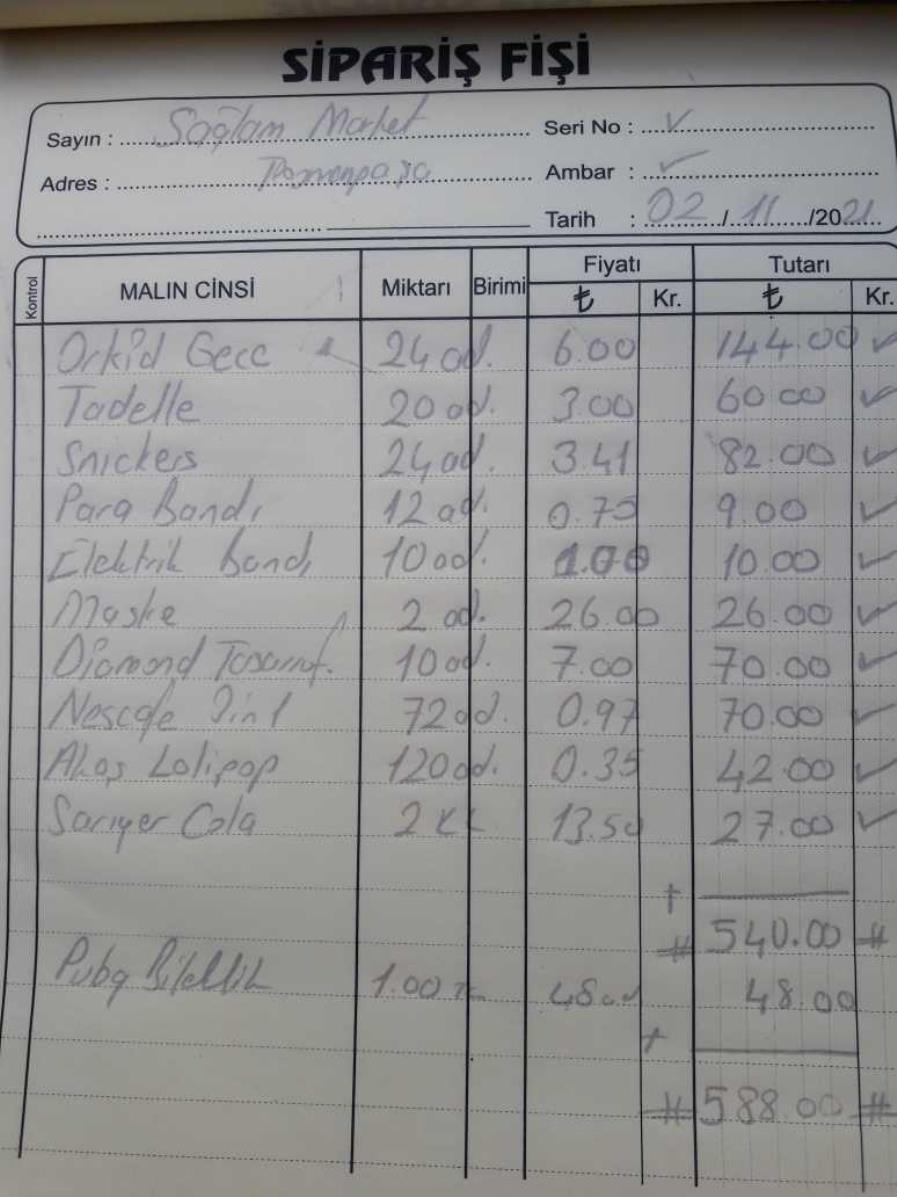 SİPARİŞ FİŞİ
Sayın : Sağlam Market Seri No : ✓
Adres : Ambar : ✓
Tarih : 02/11/2021
Kontrol MALIN CİNSİ Miktarı Birimi Fiyatı Tutarı
₺ Kr. ₺ Kr.
Orkid Gece 24 ad. 6.00 144.00 ✓
Tadelle 20 ad. 3.00 60.00 ✓
Snickers 24 ad. 3.41 82.00 ✓
Para Bandı 12 ad. 0.75 9.00 ✓
Elektrik Bandı 10 ad. 1.00 10.00 ✓
Maske 2 ad. 26.00 26.00 ✓
Diamond Tasarruf. 10 ad. 7.00 70.00 ✓
Nescafe 3in1 72 ad. 0.97 70.00 ✓
Akaş Lolipop 120 ad. 0.35 42.00 ✓
Sarıyer Cola 2 KL 13.50 27.00 ✓
+
# 540.00 #
Pubg 1.00 48.00 48.00
+
# 588.00 #